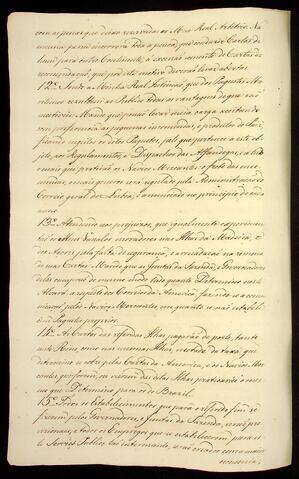 com as penas que deixo reservadas ao Meu Real Arbitrio. Na
mesma pena incorrerá toda a pessoa, que conduzir Cartas de
hum para outro Continente, á excessaõ sómente de Cartas de
recomendaçaõ, que por este motivo deveraõ levar abertas
12.º Sendo a Minha Real Intençaõ, que dos Paquetes Ma-
ritimos resultem ao Publico todas as vantagens de que saõ
susceptiveis: Mando que possaõ levar em carga acceitando
com preferencia as pequenas incomendas, e productos do Paiz,
ficando sugeitos os ditos Paquetes, pelo que pertence a este ob-
jeto, aos Regulamentos, e Despachos das Alfandegas, e a tudo
o mais que praticaõ os Navios Mercantes: o frete das enco-
mendas, e mais generos será regulado pela Administraçaõ do
Correio geral de Lisboa, e annunciado no principio de cada
anno.
13.º Attendendo aos prejuizos, que igualmente experimen-
taõ os Meus Vassalos moradores nas Ilhas da Madeira, e
dos Açores pela falta de segurança, e arrecadaçaõ na remessa
de suas Cartas: Mando que as Juntas da Fazenda, e Governadores
dellas cumpraõ do mesmo modo tudo quanto Determino neste
Alvará, a respeito dos Correios da America, fazendo-se a comu-
nicaçaõ pelos Navios Mercantes, em quanto se naõ estabele-
cem Paquetes proprios.
14.º As Cartas das referidas Ilhas pagaraõ de porte, tanto
neste Reino, como nas mesmas Ilhas, metade da taxa, que
determino se cobre pelas Cartas da America; e os Navios Mer-
cantes que forem, ou vierem das ditas Ilhas praticaraõ o mes-
mo que Determino para os do Brazil.
15.º Todos os Estabelecimentos, que para o referido fim se
fizerem pelos Governadores, e Juntas da Fazenda, seraõ pro-
visionaes, e todos os Empregos que se estabelecerem para es-
te Serviço Publico taõ interessante, seraõ creados com a maior
economia;